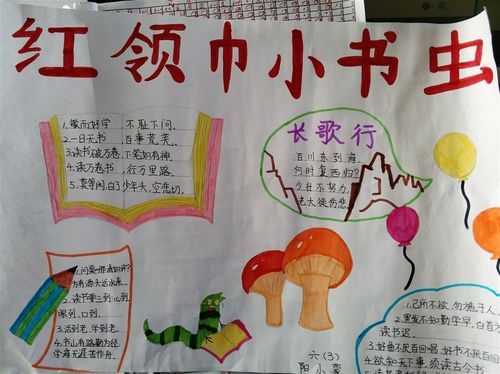 红领巾小书虫
1.敏而好学 不耻下问.
2.一日无书 百事荒芜.
3.读书破万卷,下笔如有神.
4.读万卷书, 行万里路.
5.莫等闲,白了少年头,空悲切.
长歌行
百川东到海,
何时复西归?
少壮不努力,
老大徒伤悲.
1.问渠那得清如许?
为有源头活水来.
2.读书要三到:心到
眼到,口到.
3.活到老,学到老.
4.书山有路勤为径
学海无涯苦作舟.
1.己所不欲,勿施于人.
2.黑发不知勤学早,白首方
读书迟.
3.好曲不厌百回唱,好书不厌百回
4.欲知天下事,须读古今书
六(3)
阳小蕊